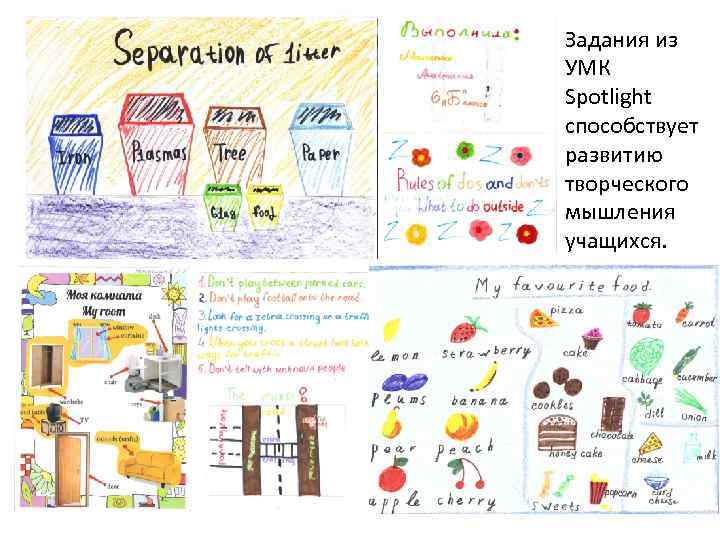 Separation of litter
Iron
Plasmas
Tree
Paper
Glas
food
Выполнила:
6 "Б" класса
Rules of dos and don'ts
What to do outside
Задания из
УМК
Spotlight
способствует
развитию
творческого
мышления
учащихся.
Моя комната
My room
window
curtains
desk
chair
wardrobe
TV
toys
door
1. Don't play between parked cars.
2. Don't play football on the road.
3. Look for a zebra crossing or a traffic
lights crossing.
4. When you cross a street look both
ways for traffic.
5. Don't talk with unknown people
The
My favourite food.
lemon
strawberry
plums
banana
pear
peach
apple
cherry
pizza
cake
cookies
chocolate
honey cake
sweets
popcorn
tomato
carrot
cabbage
cucumber
dill
onion
cheese
milk
curd
cheese